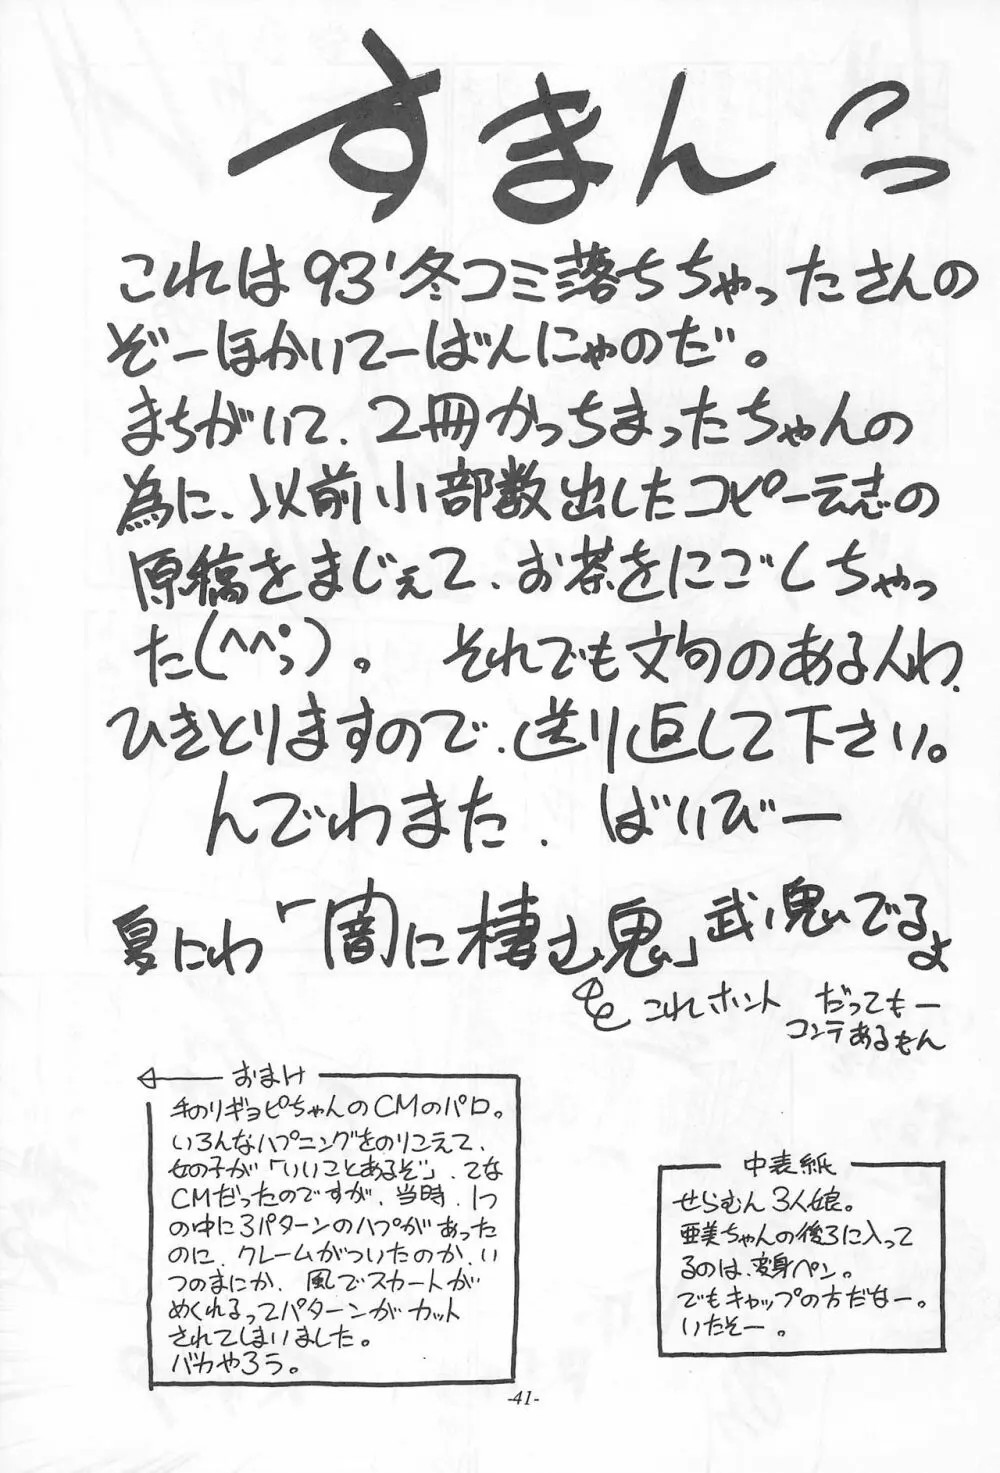 すまんっ
これは93'冬コミ落ちちゃったさんの
ぞーほかいてーばんにゃのだ。
まちがいて、2冊かっちまったちゃんの
為に、以前小部数出したコピー誌の
原稿をまじぇて、お茶をにごしちゃっ
た(^^;)。 それでも文句のある人わ、
ひきとりますので、送り返して下さい。
んでわまた、ばいびー
夏にわ「闇に棲む鬼」武ノ鬼いでるよ
これホント だってもー
コンテあるもん
おまけ
手のりギョピちゃんのCMのパロ。
いろんなハプニングをのりこえて、
女の子が「いいことあるぞ」、てな
CMだったのですが、当時、1つ
の中に3パターンのハプがあった
のに、クレームがついたのか、い
つのまにか、風でスカートが
めくれるってパターンがカット
されてしまいました。
バカやろう。
中表紙
せらむん3人娘。
亜美ちゃんの後ろに入って
るのは、変身ペン。
でもキャップの方だなー。
いたそー。
-41-